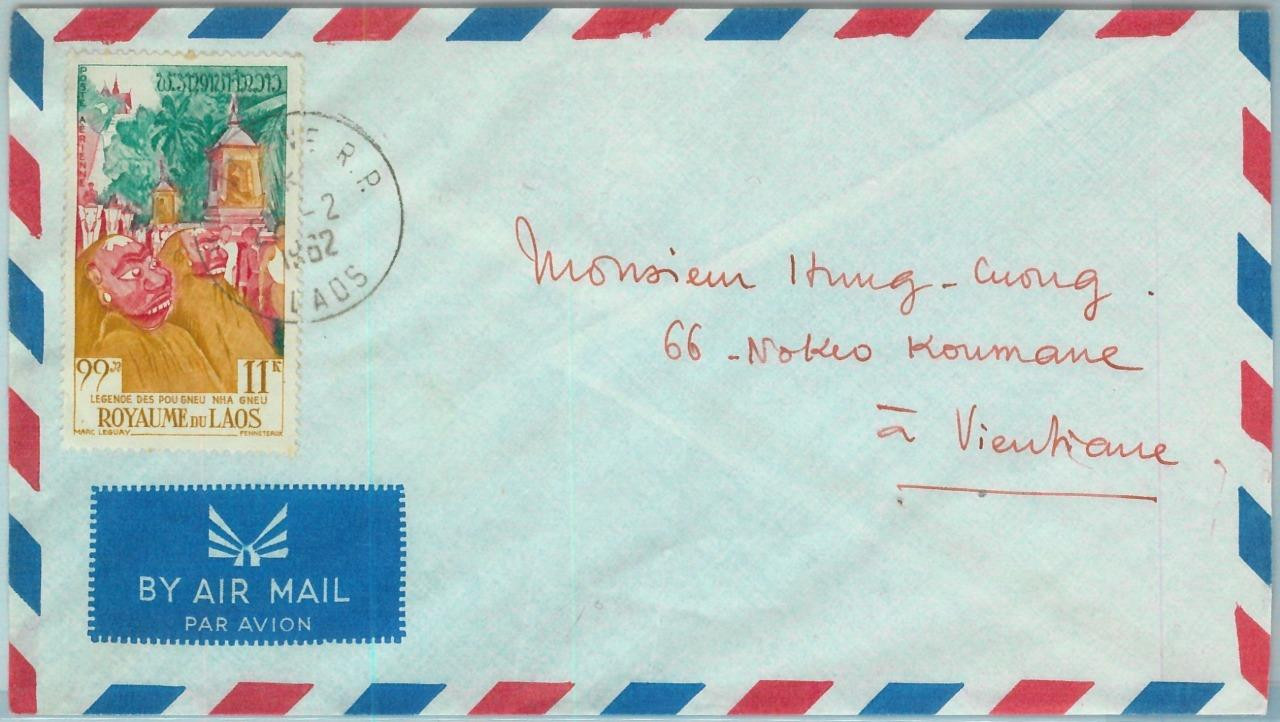 POSTE AÉRIENNE
R.P.
-2
1962
LAOS
໑໑ 11K
LEGENDE DES POU GNEU NHA GNEU
ROYAUME DU LAOS
MARC LEGUAY PENNETEAUX
Monsieur Hung-Cuong.
66 - Nokeo Koumane
à Vientiane,
BY AIR MAIL
PAR AVION